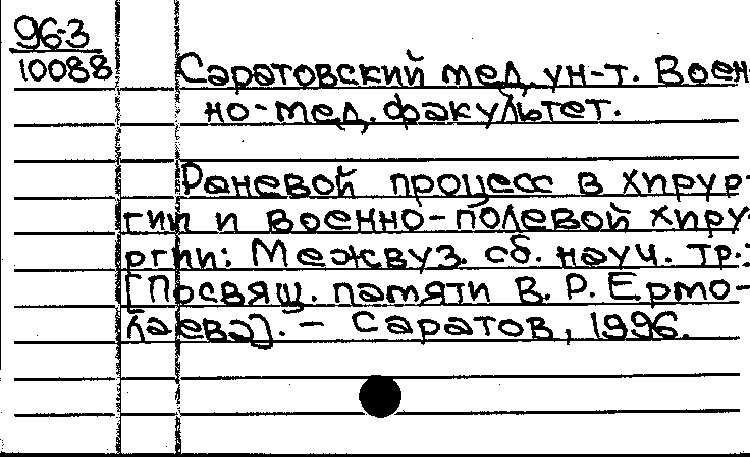 96-3
10088
Саратовский мед. ун-т. Воен-
но-мед. факультет.
Раневой процесс в хирур-
гии и военно-полевой хиру-
ргии: Межвуз. сб. науч. тр.:
[Посвящ. памяти В. Р. Ермо-
лаева]. – Саратов, 1996.